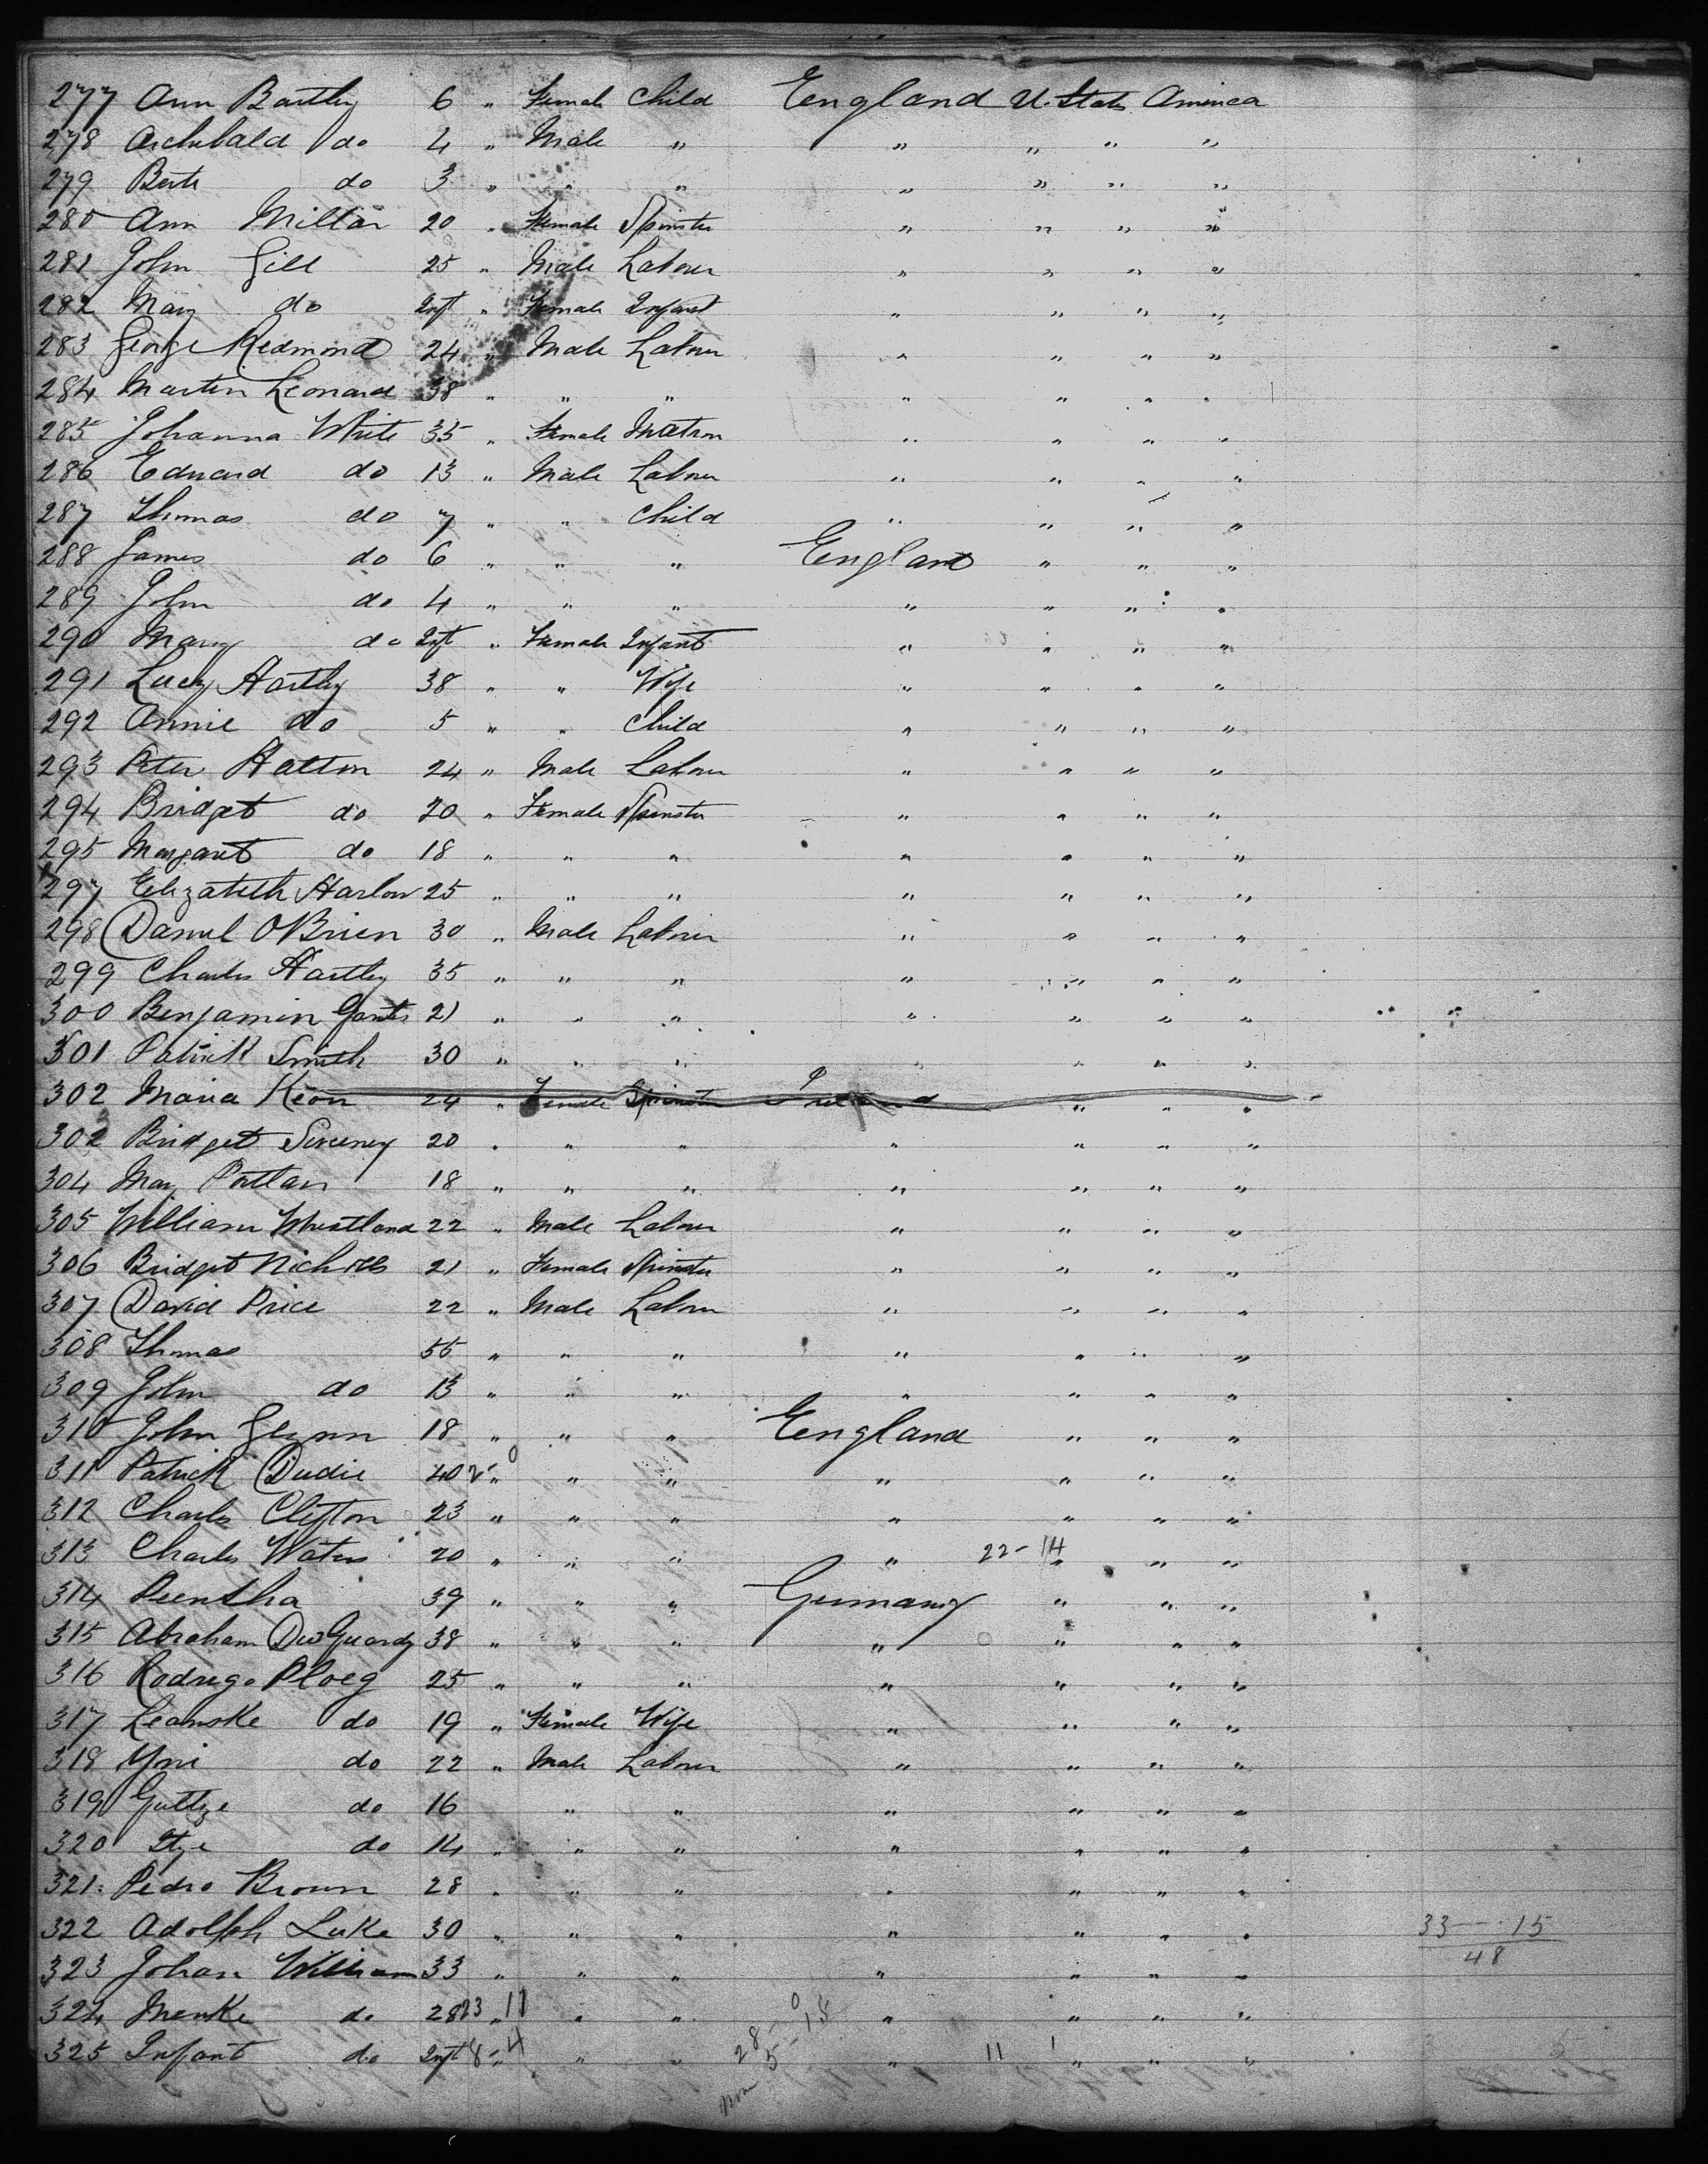 277 Ann Bartley 6 " Female Child England U. States America
278 Archibald do 4 " Male " " " " "
279 Berte do 3 " " " " " " "
280 Ann Millar 20 " Female Spinster " " " "
281 John Gill 25 " Male Labour " " " "
282 Mary do Inft " Female Infant " " " "
283 George Redmond 24 " Male Labour " " " "
284 Martin Leonard 38 " " " " " " "
285 Johanna White 35 " Female Matron " " " "
286 Edward do 13 " Male Labour " " " "
287 Thomas do 7 " " Child " " " "
288 James do 6 " " " England " " "
289 John do 4 " " " " " " "
290 Mary do Inft " Female Infant " " " "
291 Lucy Hartley 38 " " Wife " " " "
292 Annie do 5 " " Child " " " "
293 Peter Hatton 24 " Male Labour " " " "
294 Bridget do 20 " Female Spinster " " " "
295 Margaret do 18 " " " " " " "
297 Elizabeth Harlow 25 " " " " " " "
298 Daniel O'Brien 30 " Male Labour " " " "
299 Charles Hartley 35 " " " " " " "
300 Benjamin 21 " " " " " " "
301 Patrick Smith 30 " " " " " " "
302 Maria Keon 24 " Female Spinster Ireland " " "
302 Bridget Sweeney 20 " " " " " " "
304 May Pattan 18 " " " " " " "
305 William Wheatland 22 " Male Labour " " " "
306 Bridget Nicholls 21 " Female Spinster " " " "
307 David Price 22 " Male Labour " " " "
308 Thomas 55 " " " " " " "
309 John do 13 " " " " " " "
310 John Glynn 18 " " " England " " "
311 Patrick Dudie 40 " " " " " " "
312 Charles Clifton 23 " " " " " " "
313 Charles Waters 20 " " " " 22-14 " " "
314 Peentha 39 " " " Germany " " "
315 Abraham 38 " " " " " " "
316 Rodrigo Ploeg 25 " " " " " " "
317 Leamske do 19 " Female Wife " " " "
318 Yni do 22 " Male Labour " " " "
319 Guttze do 16 " " " " " "
320 Itze do 14 " " " " " " "
321 Pedro Brown 28 " " " " " " "
322 Adolph Luke 30 " " " " " " " 33--15
48
323 Johan William 33 " " " " " " "
324 Menke do 28 23 " 11 " " " " " "
325 Infant do Inft 8 " 4 " " 28-15 " 11 1 " " "
5